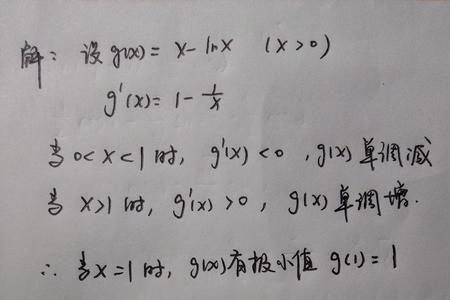 解：设 g(x) = x - lnx (x > 0)
g'(x) = 1 - 1/x
当 0 < x < 1 时, g'(x) < 0, g(x) 单调减
当 x > 1 时, g'(x) > 0, g(x) 单调增.
∴ 当 x = 1 时, g(x) 有极小值 g(1) = 1